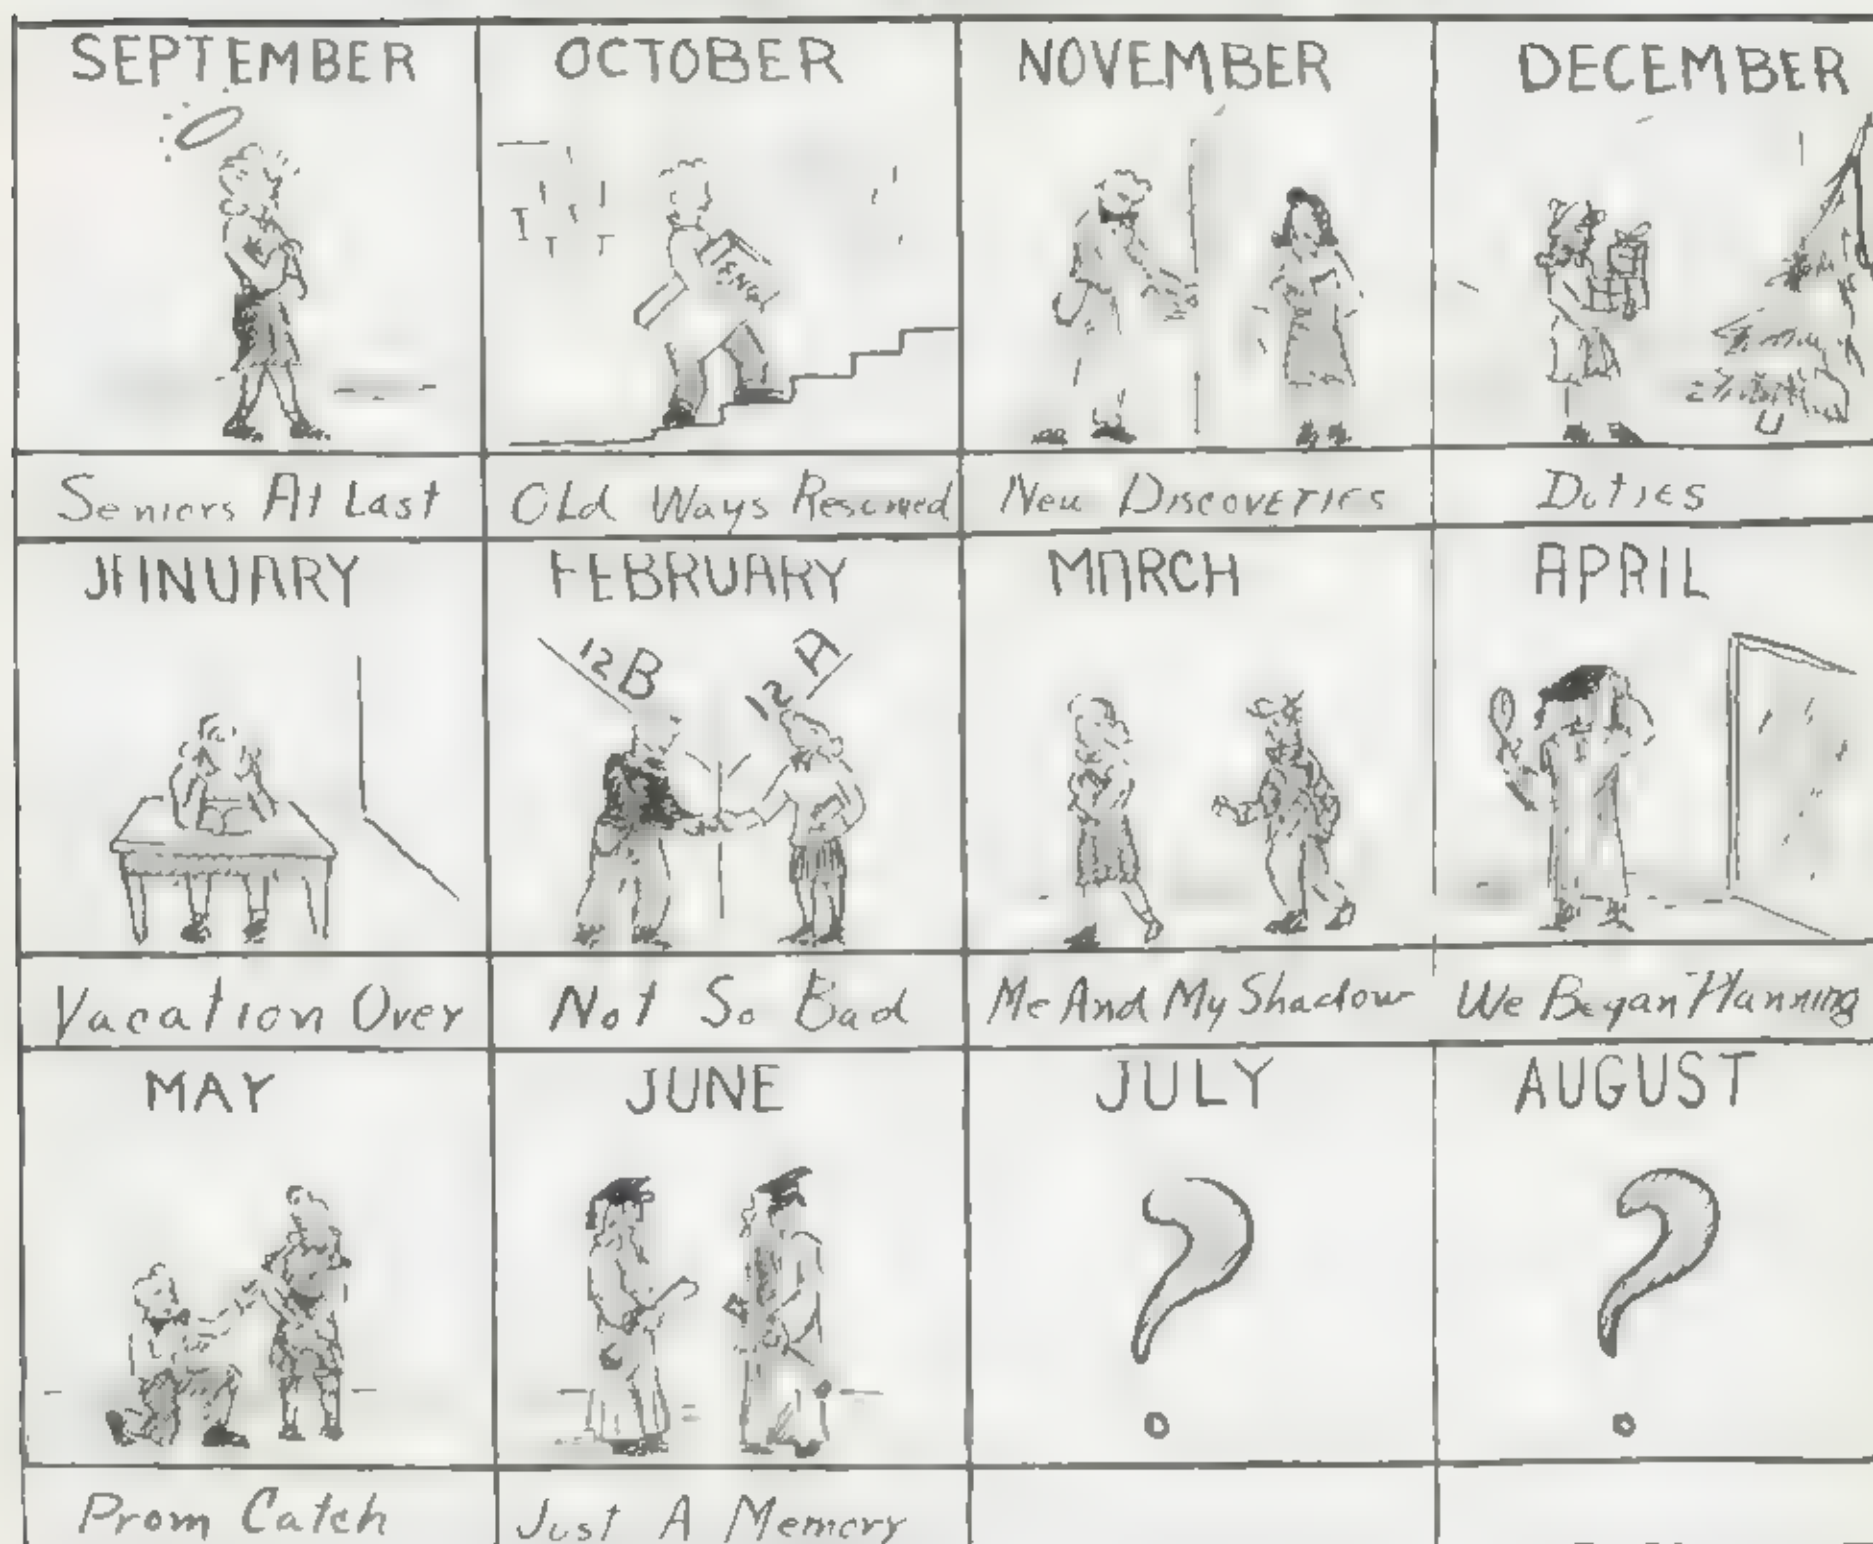 SEPTEMBER OCTOBER NOVEMBER DECEMBER
ENGL
Seniors At Last Old Ways Resumed New Discoveries Duties
JANUARY FEBRUARY MARCH APRIL
12B 12A
Vacation Over Not So Bad Me And My Shadow We Began Planning
MAY JUNE JULY AUGUST
? ?
Prom Catch Just A Memory